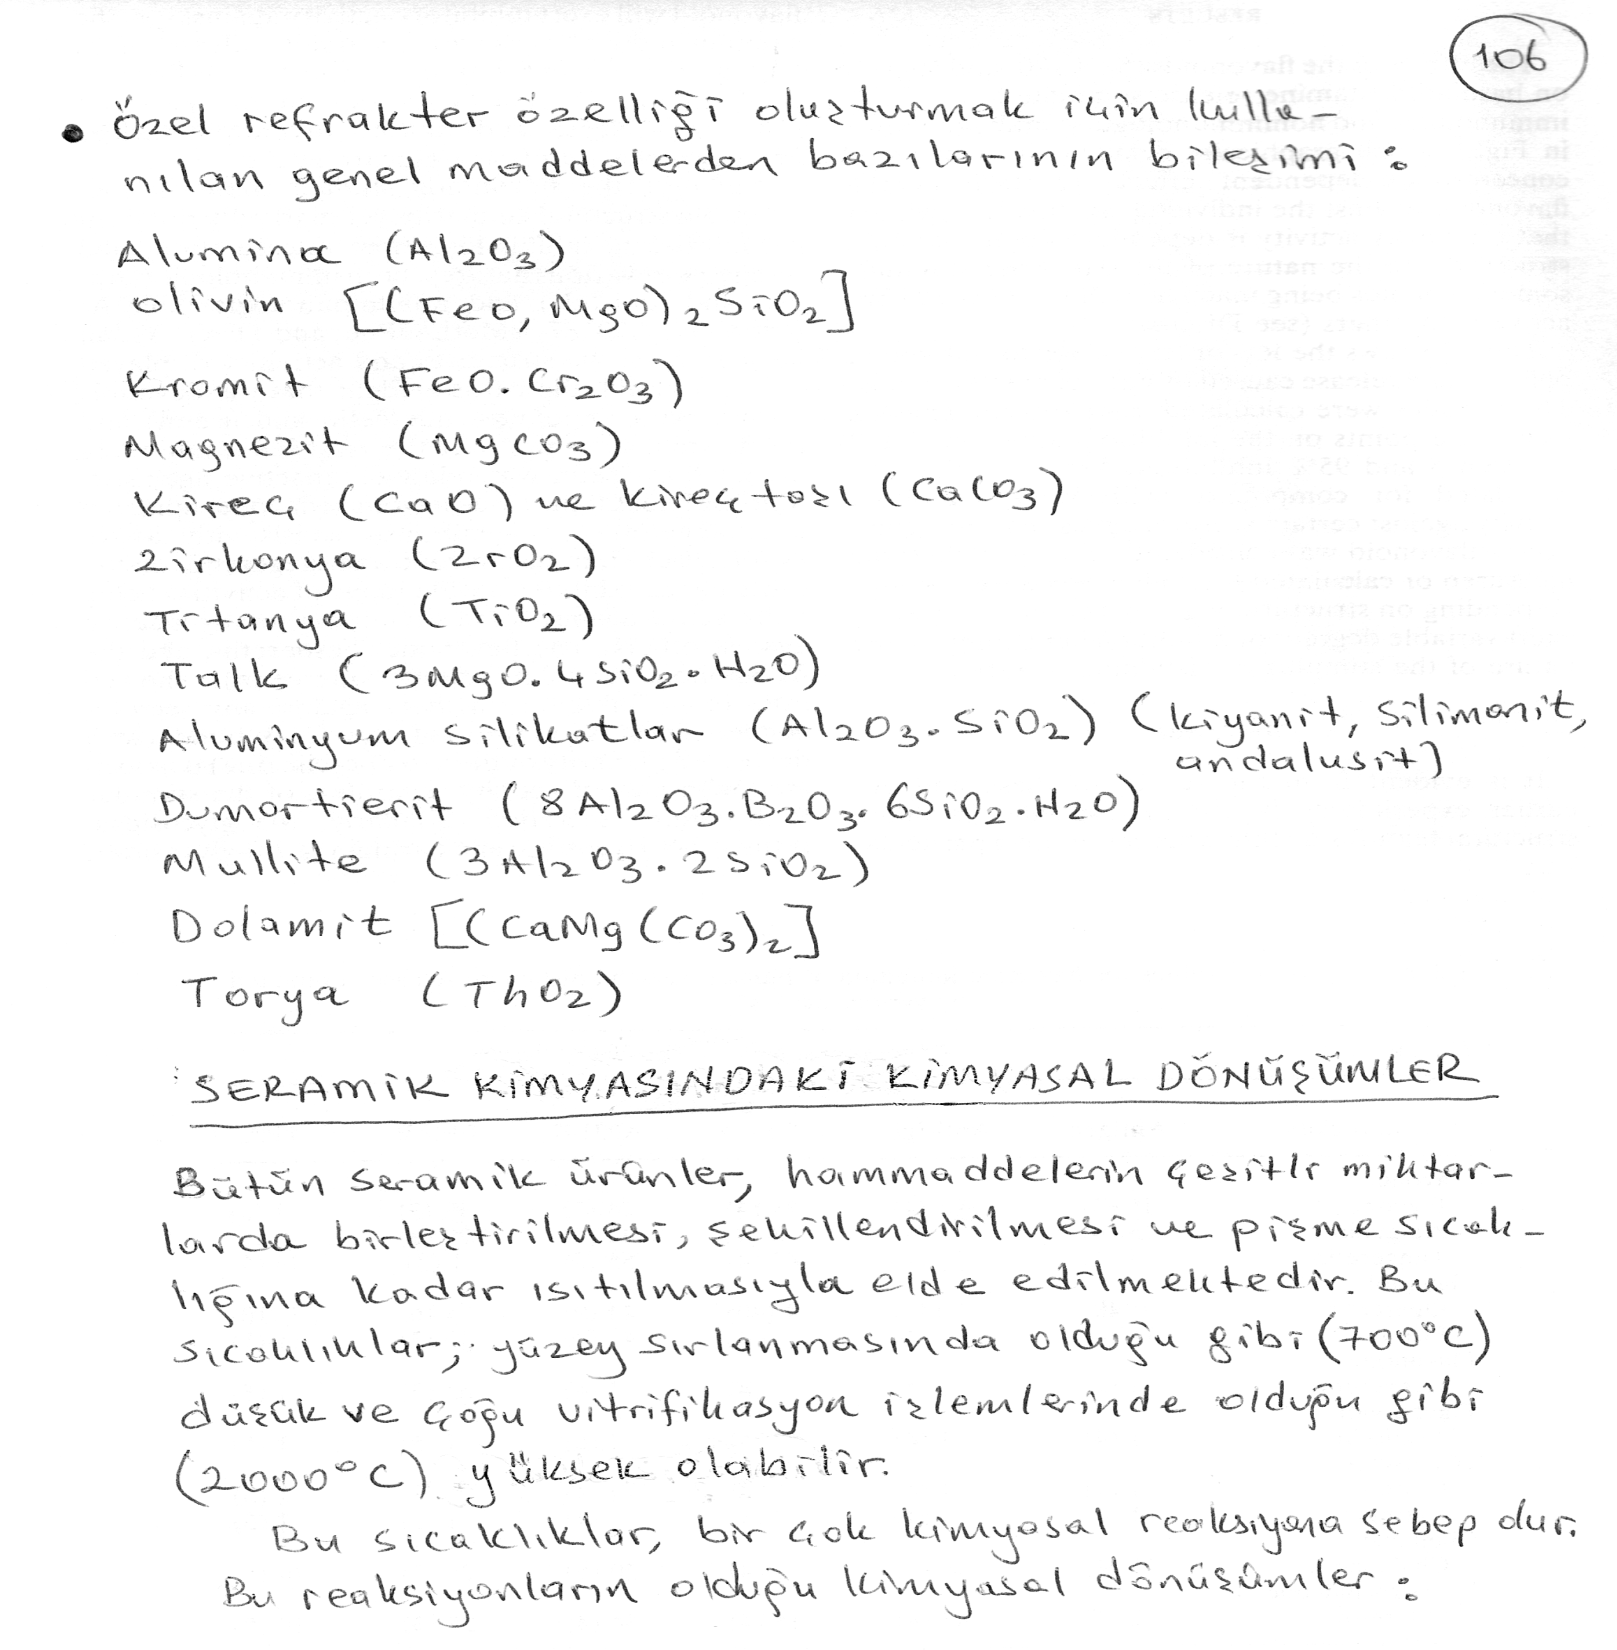 106
• Özel refrakter özelliği oluşturmak için kulla-
nılan genel maddelerden bazılarının bileşimi :
Alumina (Al2O3)
olivin [(FeO, MgO)2SiO2]
Kromit (FeO.Cr2O3)
Magnezit (MgCO3)
Kireç (CaO) ve kireçtaşı (CaCO3)
Zirkonya (ZrO2)
Titanya (TiO2)
Talk (3MgO.4SiO2.H2O)
Aluminyum silikatlar (Al2O3.SiO2) (kiyanit, silimanit,
andalusit)
Dumortierit (8Al2O3.B2O3.6SiO2.H2O)
Mullite (3Al2O3.2SiO2)
Dolamit [(CaMg(CO3)2]
Torya (ThO2)
SERAMİK KİMYASINDAKİ KİMYASAL DÖNÜŞÜMLER
Bütün seramik ürünler, hammaddelerin çeşitli miktar-
larda birleştirilmesi, şekillendirilmesi ve pişme sıcak-
lığına kadar ısıtılmasıyla elde edilmektedir. Bu
sıcaklıklar; yüzey sırlanmasında olduğu gibi (700°C)
düşük ve çoğu vitrifikasyon işlemlerinde olduğu gibi
(2000°C) yüksek olabilir.
Bu sıcaklıklar, bir çok kimyasal reaksiyona sebep olur.
Bu reaksiyonların olduğu kimyasal dönüşümler :